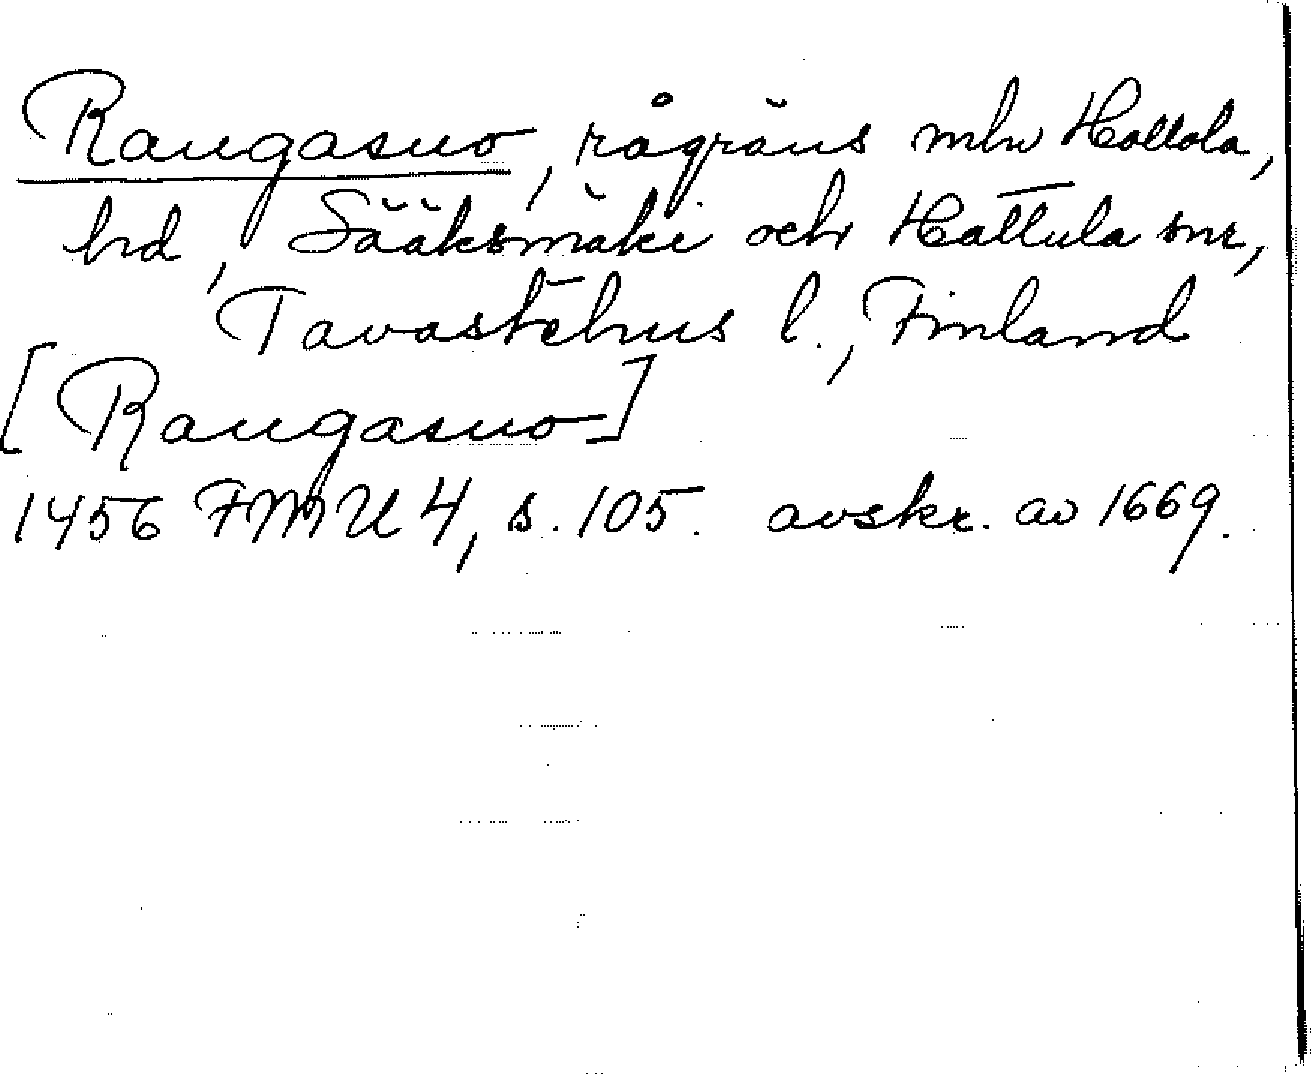 Rangasuo, rågräns mln Hollola,
hd, Sääksmäki och Hattula snr,
Tavastehus l., Finland
[Rangasuo]
1456 FMU 4, s. 105. avskr. av 1669.